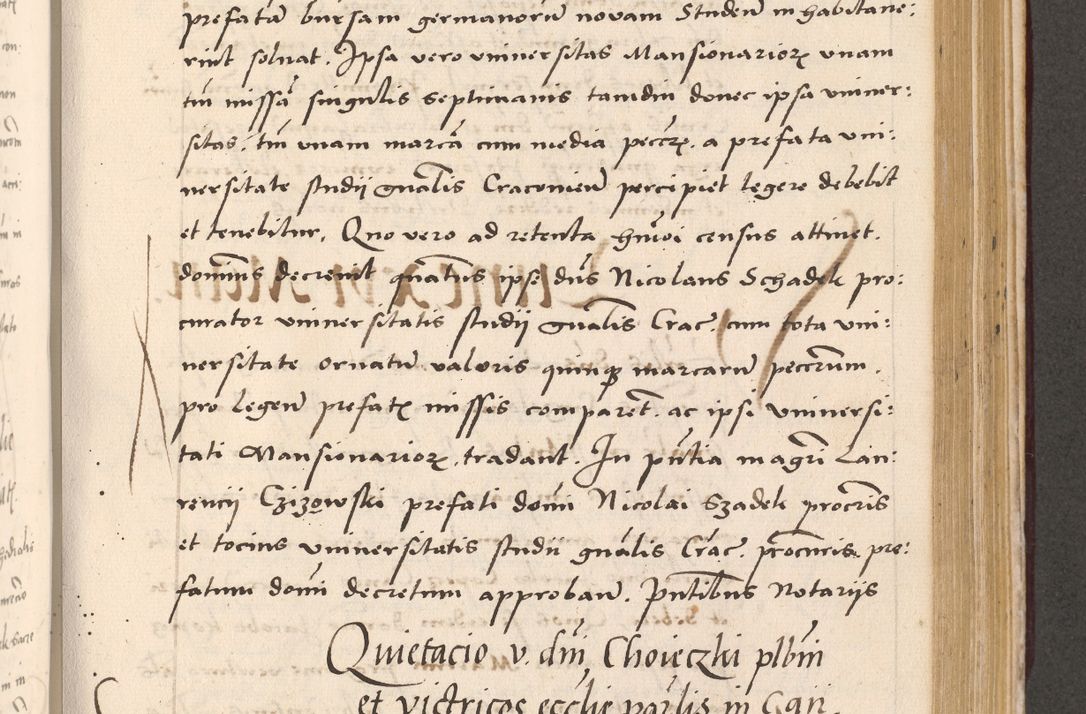 prefatam bursam germanorum novam Studen inhabitave:
rint solvat. Ipsa vero vniuersitas Mansionarioꝝ vnam
tm̄ missā singulis septimanis tamdiu donec ipsa vniuer:
sitas, tm̄ vnam marcā cum media peccꝝ. a prefata vni:
uersitate studij gn̄alis Craconien̄ percipiet legere debebit
et tenebitur. Quo vero ad retenta hm̄oi census attinet.
dominus decreuit quatn̄us ipse dn̄s Nicolaus Schadek pro:
curator vniuersitatis studij gn̄alis Crac̄. cum tota vni:
uersitate ornatū valoris quinqȝ marcarū peccrum.
pro legen̄ prefatꝭ missis comparēt. ac ipsi vniuersi:
tati Mansionarioꝝ. tradant. In pn̄tia magrī Lau:
rencij Czizowski prefati domī Nicolai Szadek procrīs
et tocius vniuersitatis studii gn̄alis Crac̄. procuris pre:
fatum domī decretum approban̄. Pn̄tibus Notarijs
Quietacio v. dm̄ Choieczki plbm̄
et victricos ecclīe parlīs in Gan.